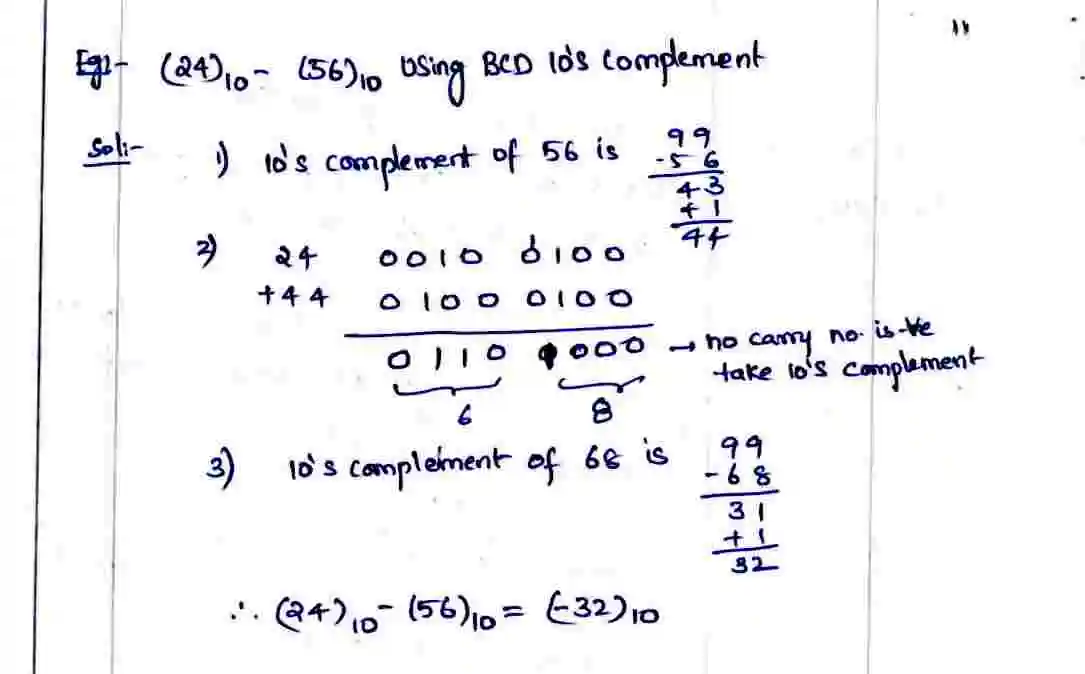 11
Eg:- (24)10 - (56)10 using BCD 10's complement
Sol:- 1) 10's complement of 56 is
99
-56
43
+1
44
2) 24 0010 0100
+44 0100 0100
0110 1000 → no carry no. is -ve
take 10's complement
6 8
3) 10's complement of 68 is
99
-68
31
+1
32
∴ (24)10 - (56)10 = (-32)10